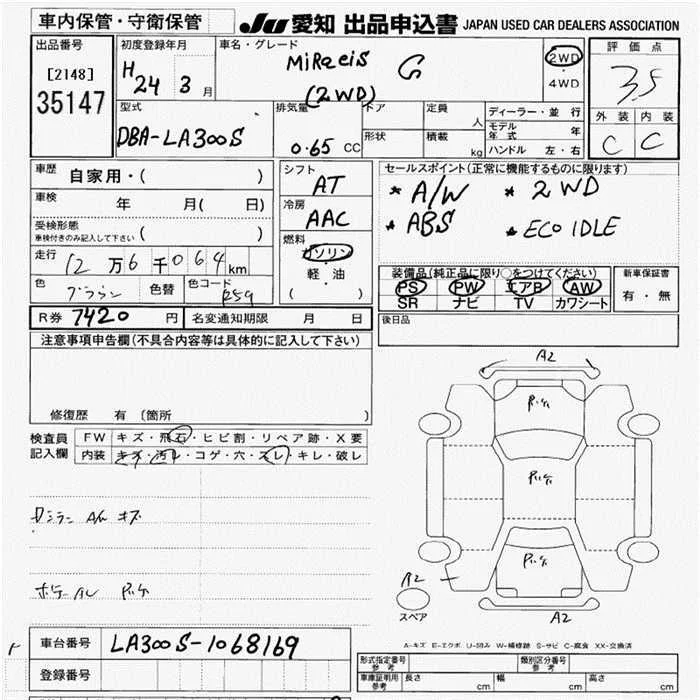 車内保管・守衛保管
JU 愛知 出品申込書 JAPAN USED CAR DEALERS ASSOCIATION
出品番号
[2148]
35147
初度登録年月
H 24 3 月
車名・グレード
MiRaeiS G
(2WD)
2WD
・
4WD
評価点
3.5
外装 内装
C C
型式
DBA-LA300S
排気量
0.65 CC
ドア
形状
定員 人
積載 kg
ディーラー・並行
モデル年式 年
ハンドル 左・右
車歴
自家用・( )
車検 年 月( 日)
受検形態
車検付きのみ記入して下さい ( )
走行
12 万 6 千 064 km
色 ブラウン 色替 色コード R59
シフト
AT
冷房
AAC
燃料
ガソリン
軽・油
( )
セールスポイント(正常に機能するものに限ります)
* A/W * 2WD
* ABS * ECO IDLE
装備品(純正品に限り○をつけてください)
PS PW エアB AW
SR ナビ TV カワシート
新車保証書
有・無
R券 7420 円 名変通知期限 月 日
後日品
注意事項申告欄(不具合内容等は具体的に記入して下さい)
修復歴 有 (箇所 )
検査員記入欄
FW キズ・飛石・ヒビ割・リペア跡・X要
内装 キズ・汚レ・コゲ・穴・スレ・キレ・破レ
A/W キズ
A2
A2
A2
スペア
A-キズ E-エクボ U-凹み W-補修跡 S-サビ C-腐食 XX-交換済
車台番号 LA300S-1068169
登録番号
形式指定番号 参考
類別区分番号 参考
車庫証明用 参考 長さ cm 幅 cm 高さ cm